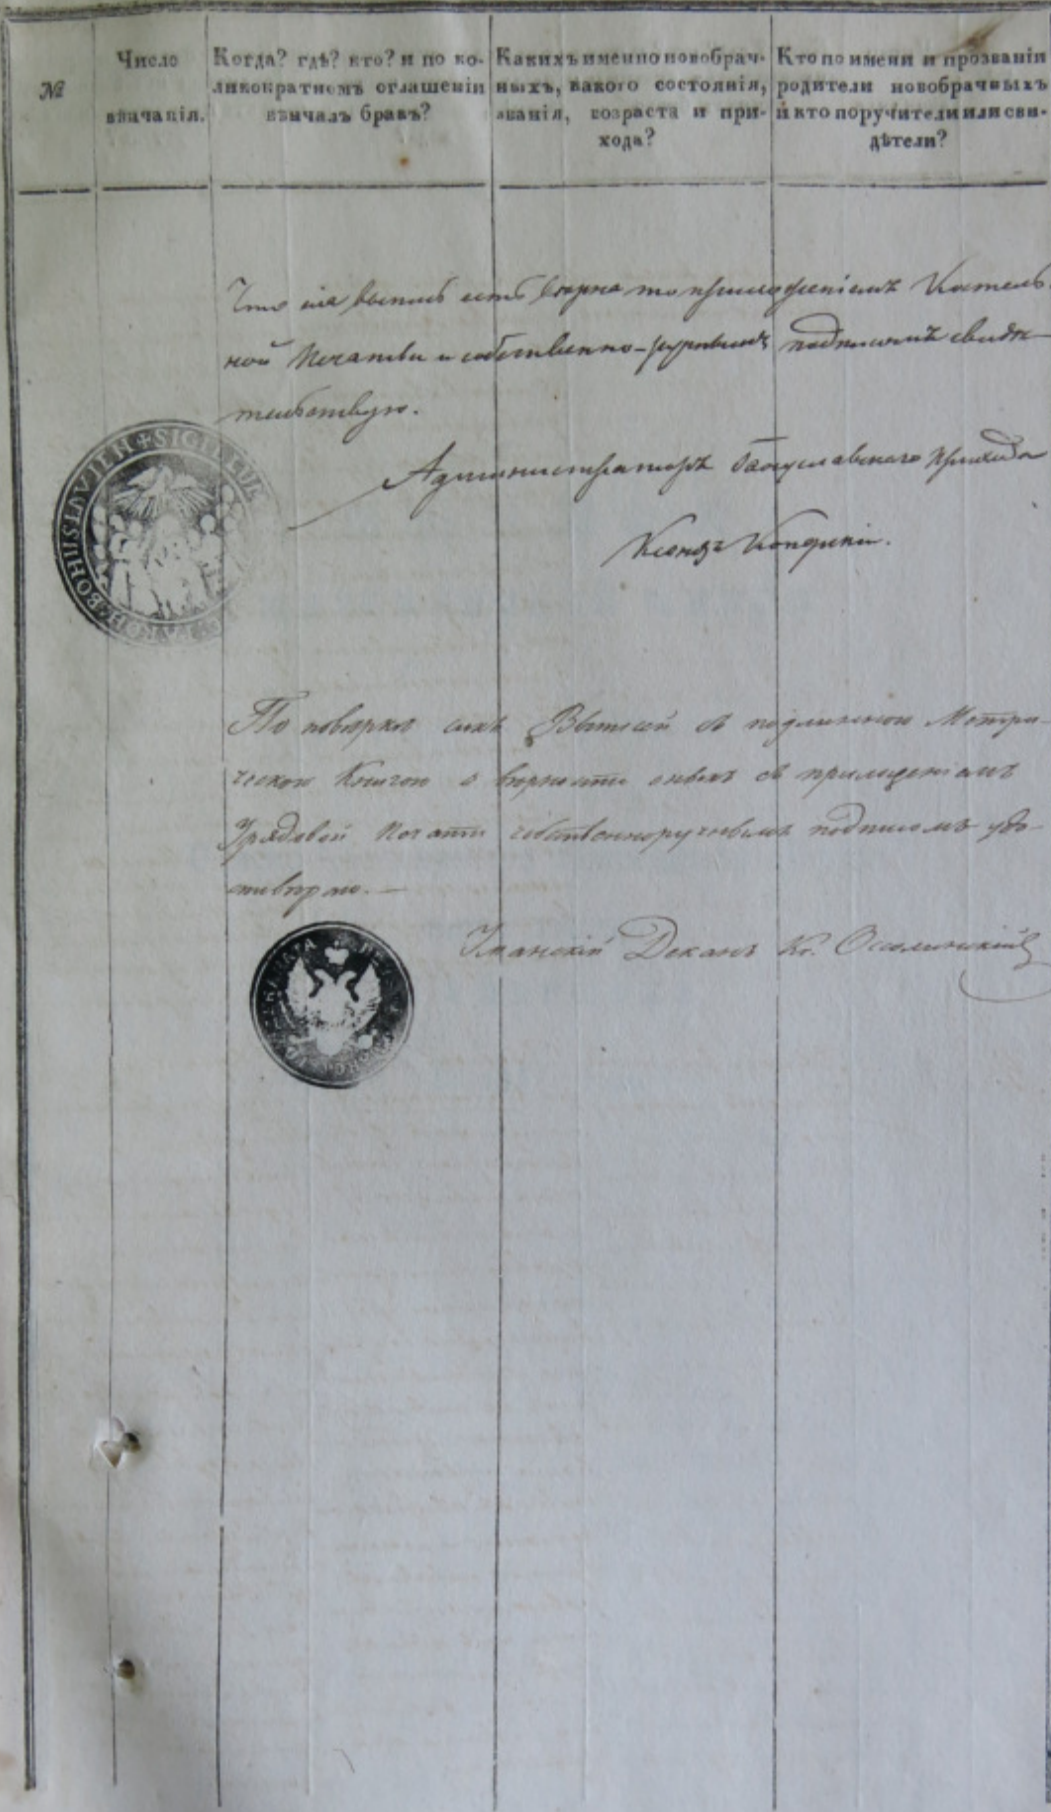 №
Число
вѣнчанія.
Когда? гдѣ? кто? и по ко-
ликократномъ оглашеніи
вѣнчалъ бракъ?
Какихъ именно новобрач-
ныхъ, какого состоянія,
званія, возраста и при-
хода?
Кто по имени и прозванію
родители новобрачныхъ
и кто поручители или сви-
дѣтели?
Что сія выпись есть вѣрна то приложеніемъ Костель-
ной Печатьи и собственно-ручнымъ подписомъ свидѣ-
тельствую.
Администраторъ Богуславскаго прихода
Ксендзъ
SIGILLUM
BOHUSLAVIEN
По повѣркѣ сихъ Выписей съ подлинною Метри-
ческою Книгою о вѣрности оныхъ съ приложеніемъ
Урядовой Печати собственноручнымъ подписомъ удо-
стовѣряю.
Уманскій Деканъ Кс. Оссолинскій